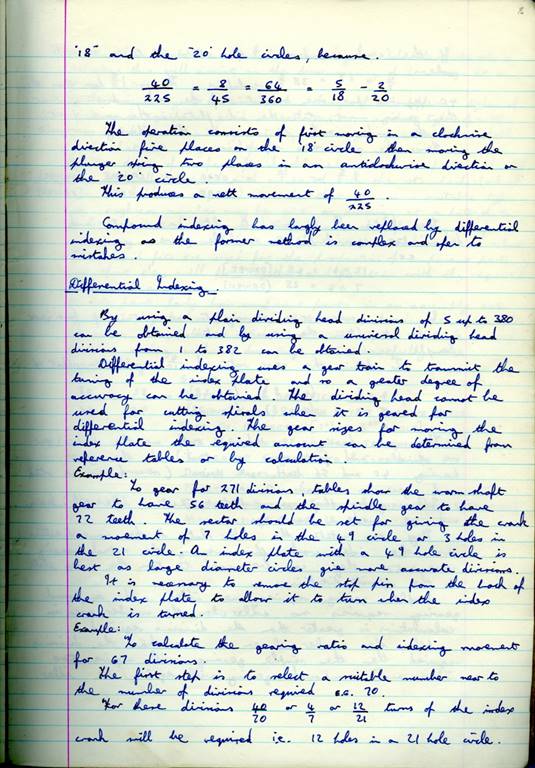 "18" and the "20" hole circles, because.
40/225 = 8/45 = 64/360 = 5/18 - 2/20
The operation consists of first moving in a clockwise
direction five places on the '18' circle then moving the
plunger spring two places in an anticlockwise direction on
the '20' circle.
This produces a nett movement of 40/225.
Compound indexing has largly been replaced by differential
indexing as the former method is complex and open to
mistakes.
Differential Indexing.
By using a plain dividing head divisions of 5 up to 380
can be obtained and by using a universal dividing head
divisions from 1 to 382 can be obtained.
Differential indexing uses a gear train to transmit the
turning of the index plate and so a greater degree of
accuracy can be obtained. The dividing head cannot be
used for cutting spirals when it is geared for
differential indexing. The gear sizes for moving the
index plate the required amount can be determined from
reference tables or by calculation.
Example:
To gear for 271 divisions, tables show the worm shaft
gear to have 56 teeth and the spindle gear to have
72 teeth. The sector should be set for giving the crank
a movement of 7 holes in the 49 circle or 3 holes in
the 21 circle. An index plate with a 49 hole circle is
best as large diameter circles give more accurate divisions.
It is necessary to remove the stop pin from the back of
the index plate to allow it to turn when the index
crank is turned.
Example:
To calculate the gearing ratio and indexing movement
for 67 divisions.
The first step is to select a suitable number near to
the number of divisions required e.g. 70.
For these divisions 40/70 or 4/7 or 12/21 turns of the index
crank will be required i.e. 12 holes in a 21 hole circle.